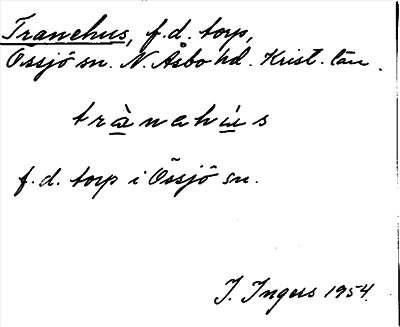 Tranehus, f.d. torp,
Össjö sn. N. Åsbo hd. Krist. län.
trànehús
f.d. torp i Össjö sn.
I. Ingers 1954.